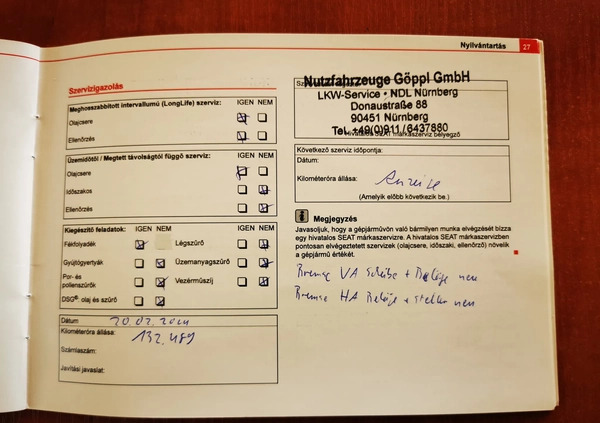 Nyilvántartás 27
Szervizigazolás
Meghosszabbított intervallumú (LongLife) szerviz: IGEN NEM
Olajcsere
Ellenőrzés
Üzemidőtől / Megtett távolságtól függő szerviz: IGEN NEM
Olajcsere
Időszakos
Ellenőrzés
Kiegészítő feladatok: IGEN NEM IGEN NEM
Fékfolyadék Légszűrő
Gyújtógyertyák Üzemanyagszűrő
Por- és
pollenszűrők Vezérműszíj
DSG® olaj és szűrő
Dátum
Kilométeróra állása: 132.489
Számlaszám:
Javítási javaslat:
Nutzfahrzeuge Göppl GmbH
LKW-Service • NDL Nürnberg
Donaustraße 88
90451 Nürnberg
Tel. +49(0)911/6437880
SEAT márkaszerviz bélyegző
Következő szerviz időpontja:
Dátum:
Kilométeróra állása: Anzeige
(Amelyik előbb következik be.)
Megjegyzés
Javasoljuk, hogy a gépjárművön való bármilyen munka elvégzését bízza
egy hivatalos SEAT márkaszervizre. A hivatalos SEAT márkaszervizben
pontosan elvégeztetett szervizek (olajcsere, időszaki, ellenőrző) növelik
a gépjármű értékét.
Bremse VA Scheibe + Beläge neu
Bremse HA Beläge + neu